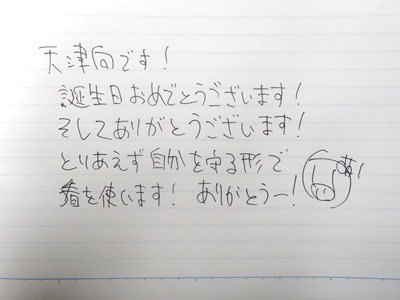 天津向です!
誕生日おめでとうございます!
そしてありがとうございます!
とりあえず自分を守る形で
を使います! ありがとうー!